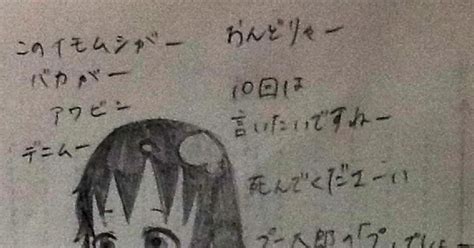 このイモムシがー
バカがー
アワビン
デニムー
おんどりゃー
10回は
言いたいですねー
死んでくだエーい
プー太郎の「プ